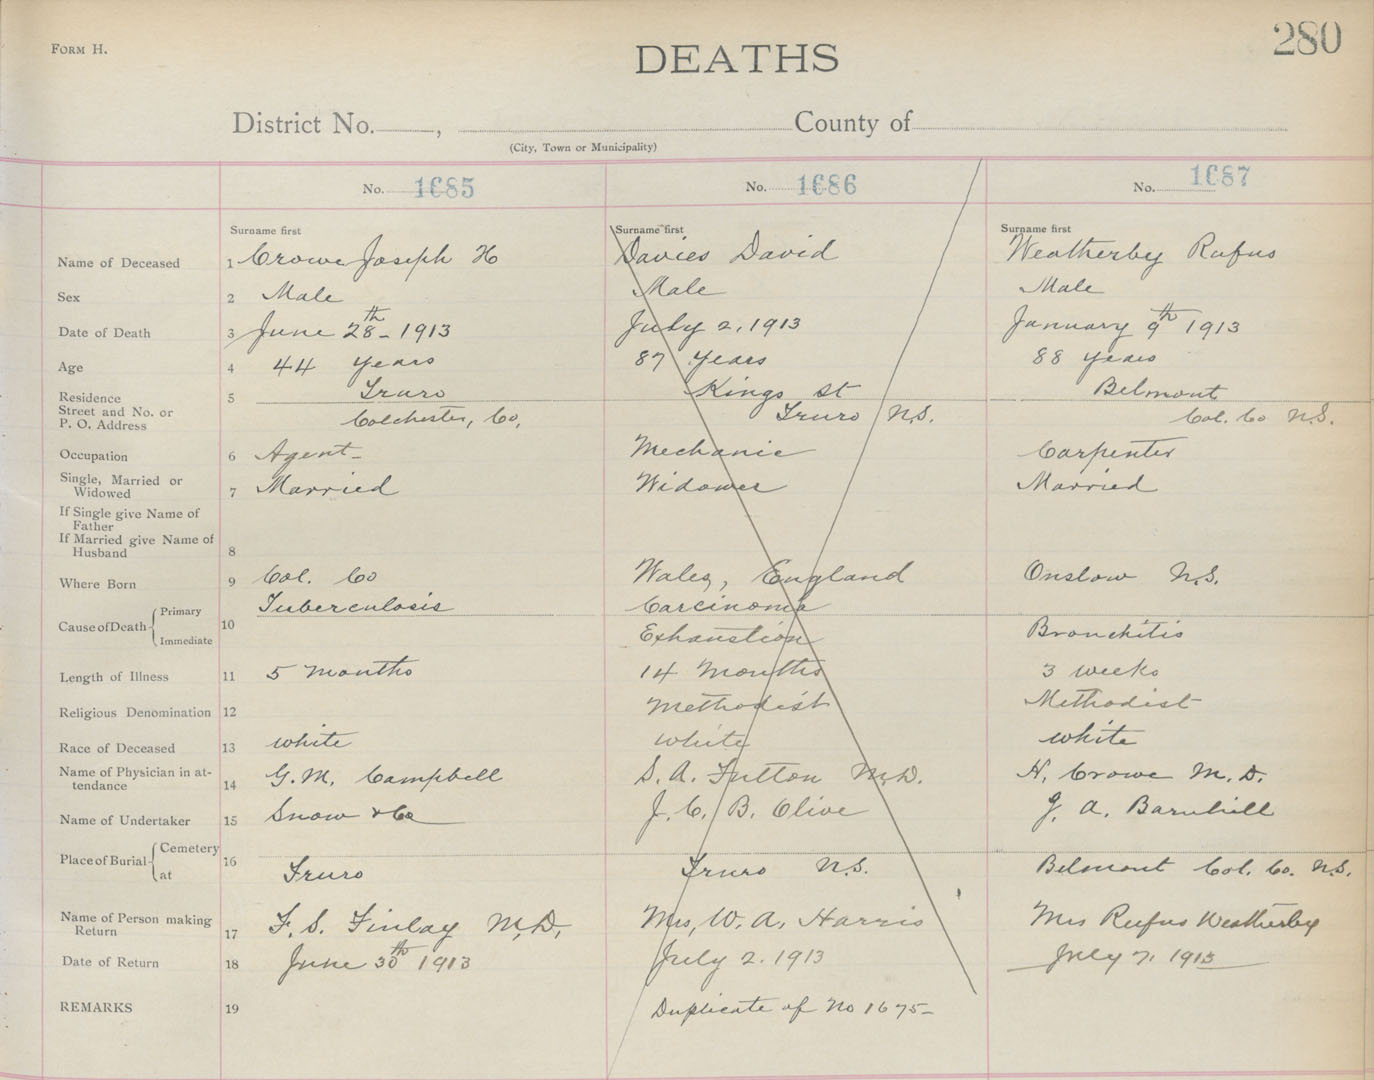 FORM H.
280
DEATHS
District No. , County of
(City, Town or Municipality)
No. 1685 No. 1686 No. 1687
Surname first Surname first Surname first
Name of Deceased 1 Crowe Joseph H Davies David Weatherby Rufus
Sex 2 Male Male Male
Date of Death 3 June 28th 1913 July 2, 1913 January 9th 1913
Age 4 44 years 87 years 88 years
Residence 5 Truro Kings St Belmont
Street and No. or
P. O. Address Colchester, Co, Truro N.S. Col. Co N.S.
Occupation 6 Agent Mechanic Carpenter
Single, Married or
Widowed 7 Married Widower Married
If Single give Name of
Father
If Married give Name of
Husband 8
Where Born 9 Col. Co Wales, England Onslow N.S.
Cause of Death Primary 10 Tuberculosis Carcinoma
Immediate Exhaustion Bronchitis
Length of Illness 11 5 months 14 Months 3 weeks
Religious Denomination 12 Methodist Methodist
Race of Deceased 13 white white white
Name of Physician in at-
tendance 14 G. M. Campbell S. A. Fulton M.D. H. Crowe M. D.
Name of Undertaker 15 Snow & Co J. C. B. Olive J. A. Barnhill
Place of Burial Cemetery 16
at Truro Truro N.S. Belmont Col. Co. N.S.
Name of Person making
Return 17 F. S. Finlay M.D. Mrs, W. A. Harris Mrs Rufus Weatherby
Date of Return 18 June 30th 1913 July 2. 1913 July 7. 1913
REMARKS 19 Duplicate of No 1675-